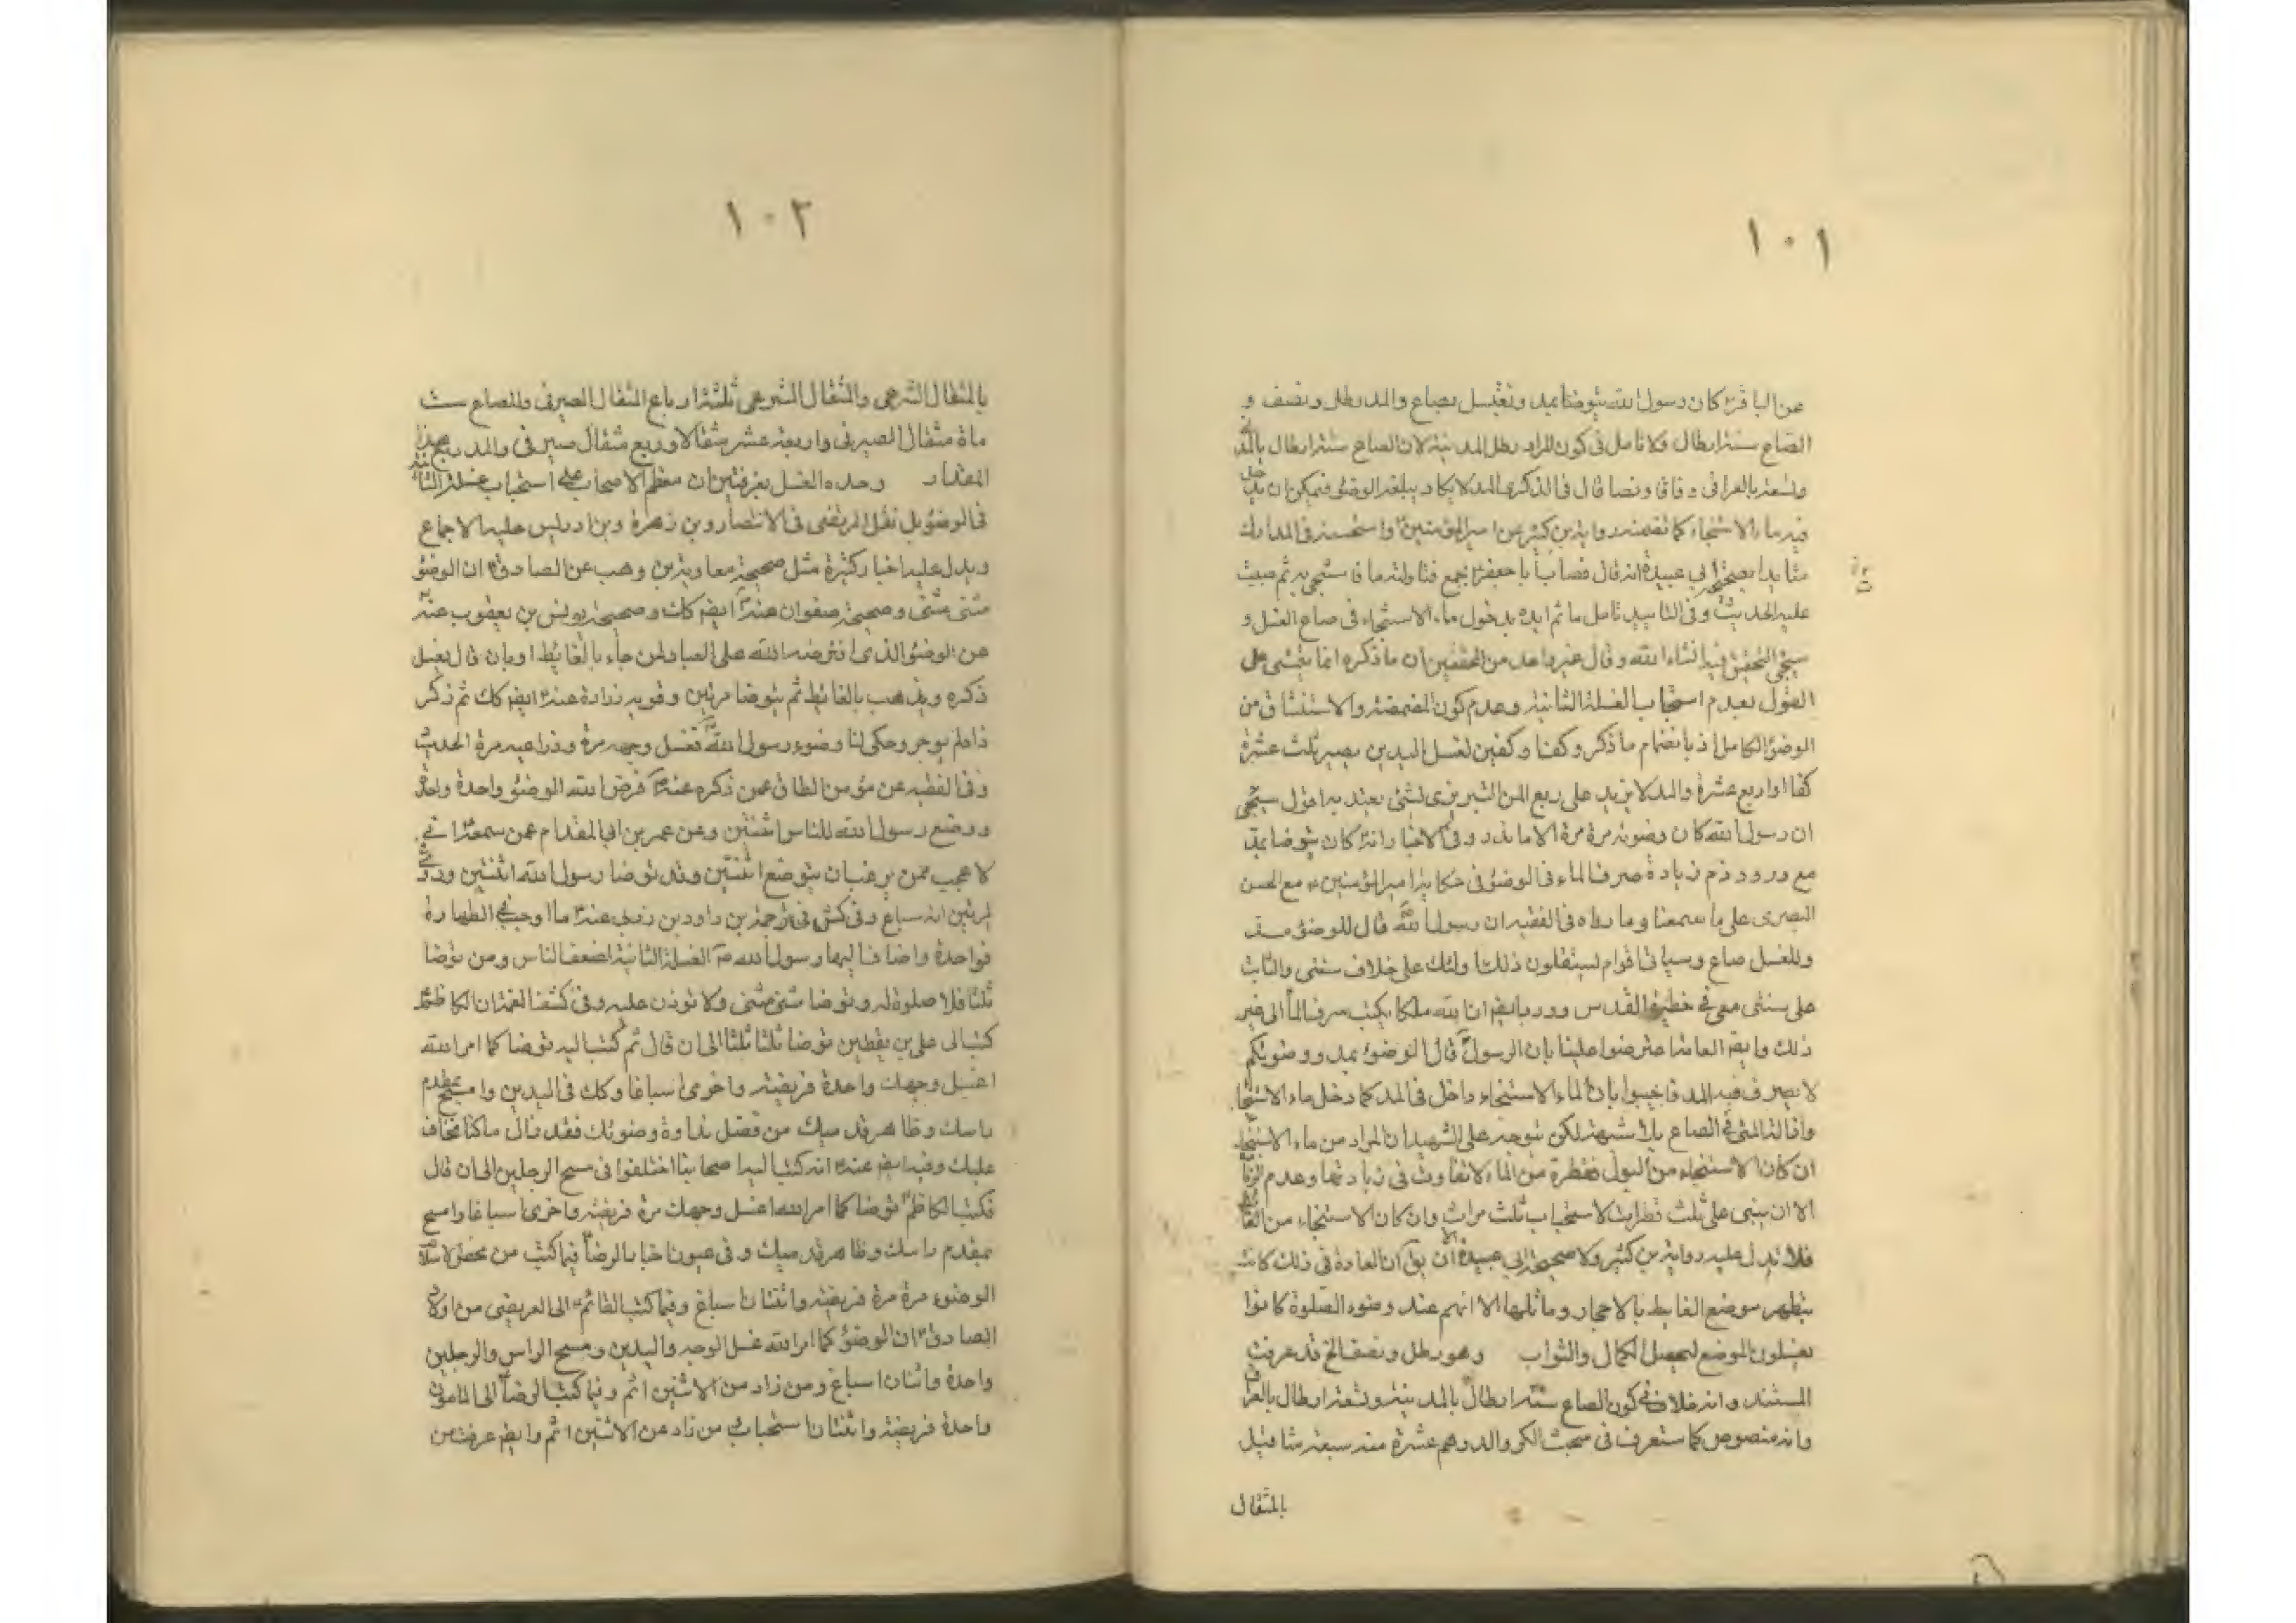 ١٠١
عن الباقرؑ كان رسول الله يتوضا بمد ويغتسل بصاع والمد رطل ونصف و
الصاع ستة ارطال فلا تامل فى كون المراد رطل المدينة لان الصاع ستة ارطال بالمد
وتسعة بالعراقى وفاقا ونصا قال فى الذكرى المد لا يكاد يبلغه الوضوء فيمكن ان يدخل
فيه ماء الاستنجاء كما تضمنه رواية بن كثير عن امير المؤمنينؑ واستحسنه فى المدارك
مؤيدا بصحيحة ابى عبيدة انه قال وضات ابا جعفرؑ بجمع فناولته ماء فاستنجى به ثم صببت
عليه الحديث وفى التاييد تامل ما ثم ايده بدخول ماء الاستنجاء فى صاع الغسل و
سيجئ التحقيق فيه انشاء الله وقال غير واحد من المحققين ان ما ذكره انما يتمشى على
القول بعدم استحباب الغسلة الثانية وعدم كون المضمضة والاستنشاق من
الوضوء الكامل اذ بانضمام ما ذكر وكفا وكفين لغسل اليدين يصير ثلث عشرة
كفا او اربع عشرة والمد لا يزيد على ربع المن التبريزى بشئ يعتد به اقول سيجئ
ان رسول الله كان وضوئه مرة مرة الا ما ندر وفى الاخبار انه كان يتوضا بمد
مع ورود ذم زيادة صرف الماء فى الوضوء فى حكاية امير المؤمنينؑ مع الحسن
البصرى على ما سمعنا وما رواه فى الفقيه ان رسول اللهؐ قال للوضوء مد
وللغسل صاع وسياتى اقوام يستقلون ذلك اولئك على خلاف سنتى والثابت
على سنتى معى فى حظيرة القدس وورد ايضم ان لله ملكا يكتب سرف الماء الى غير
ذلك وايضم العامة اعترضوا علينا بان الرسولؐ قال الوضوء بمد ووضوئكم
لا يصرف فيه المد فاجيبوا بان الماء الاستنجاء داخل فى المد كما دخل ماء الاستنجا
وازالة المنى فى الصاع بلا شبهة لكن يتوجه على الشهيد ان المراد من ماء الاستنجاء
ان كان الاستنجاء من البول فقطرة من الماء لا تفاوت فى زيادتها وعدم
الا ان يبنى على ثلث قطرات لاستحباب ثلث مرات وان كان الاستنجاء من الغائط
فلا تدل عليه رواية بن كثير ولا صحيحة ابى عبيدة الا ان يق ان العادة فى ذلك كانت
بتطهر موضع الغايط بالاحجار وما ثلها الا انهم عند وضوء الصلوة كانوا
يغسلون الموضع لتحصيل الكمال والثواب وهو رطل ونصف الخ قد عرفت
المستند وانه خلاف فى كون الصاع ستة ارطال بالمدينة وتسعة ارطال بالعراقى
وانه منصوص كما ستعرف فى مبحث الكر والدرهم عشرة منه سبعة مثاقيل
بالمثقال
١٠٢
بالمثقال الشرعى والمثقال الشرعى ثلثة ارباع المثقال الصيرفى والصاع ست
ماة مثقال الصيرفى واربعة عشر مثقالا وربع مثقال صيرفى والمد ربع هذا
المقدار وحده الغسل بغرفتين ان معظم الاصحاب على استحباب غسلة الثانية
فى الوضوء بل نقل المرتضى فى الانتصار وبن زهرة وبن ادريس عليه الاجماع
ويدل عليه اخبار كثيرة مثل صحيحة معاوية بن وهب عن الصادقؑ ان الوضوء
مثنى مثنى وصحيحة صفوان عنهؑ ايضم كك وصحيحة يونس بن يعقوب عنهؑ
عن الوضوء الذى افترضه الله على العباد لمن جاء بالغائط او بان قال يغسل
ذكره ويذهب بالغائط ثم يتوضا مرتين وقويه زرارة عنهؑ ايضم كك ثم ذكر
ذا ولم يوجر وحكى لنا وضوء رسول اللهؐ فغسل وجهه مرة وذراعيه مرة الحديث
وفى الفقيه عن مؤمن الطاق عمن ذكره عنهؑ فرض الله الوضوء واحدة واحدة
ووضع رسول الله للناس اثنتين وعن عمر بن ابى المقدام عمن سمعهؑ انى
لاعجب ممن يرغب ان يتوضا اثنتين وقد توضا رسول الله اثنتين وروى
مرتين انه سباغ وفى كش فى ترجمة بن داود بن زربى عنهؑ ما اوجب الطهارة
فواحدة واضاف اليها رسول اللهؐ الغسلة الثانية لضعف الناس ومن توضا
ثلثا فلا صلوة له وتوضا مثنى مثنى ولا تزدن عليه وفى كشف الغمة ان الكاظمؑ
كتب الى على بن يقطين توضا ثلثا ثلثا الى ان قال ثم كتب اليه توضا كما امر الله
اغسل وجهك واحدة فريضة واخرى اسباغا وكك فى اليدين وامسح بمقدم
راسك وظاهر قدميك من فضل نداوة وضوئك فقد زال ما كنا نخاف
عليك وفيه ايضم عنهؑ انه كتب اليه اصحابنا اختلفوا فى مسح الرجلين الى ان قال
فكتب الكاظمؑ توضا كما امر الله اغسل وجهك مرة فريضة واخرى اسباغا وامسح
بمقدم راسك وظاهر قدميك وفى عيون اخبار الرضاؑ فيما كتب من محض الاسلام
الوضوء مرة مرة فريضة واثنتان اسباغ وفيما كتب القائمؑ الى العريضى من اولاد
الصادقؑ ان الوضوء كما امر الله غسل الوجه واليدين ومسح الراس والرجلين
واحدة واثنتان اسباغ ومن زاد من الاثنين اثم وفيما كتب الرضاؑ الى المامون
واحدة فريضة واثنتان استحباب من زاد من الاثنتين اثم وايضم عرفت من